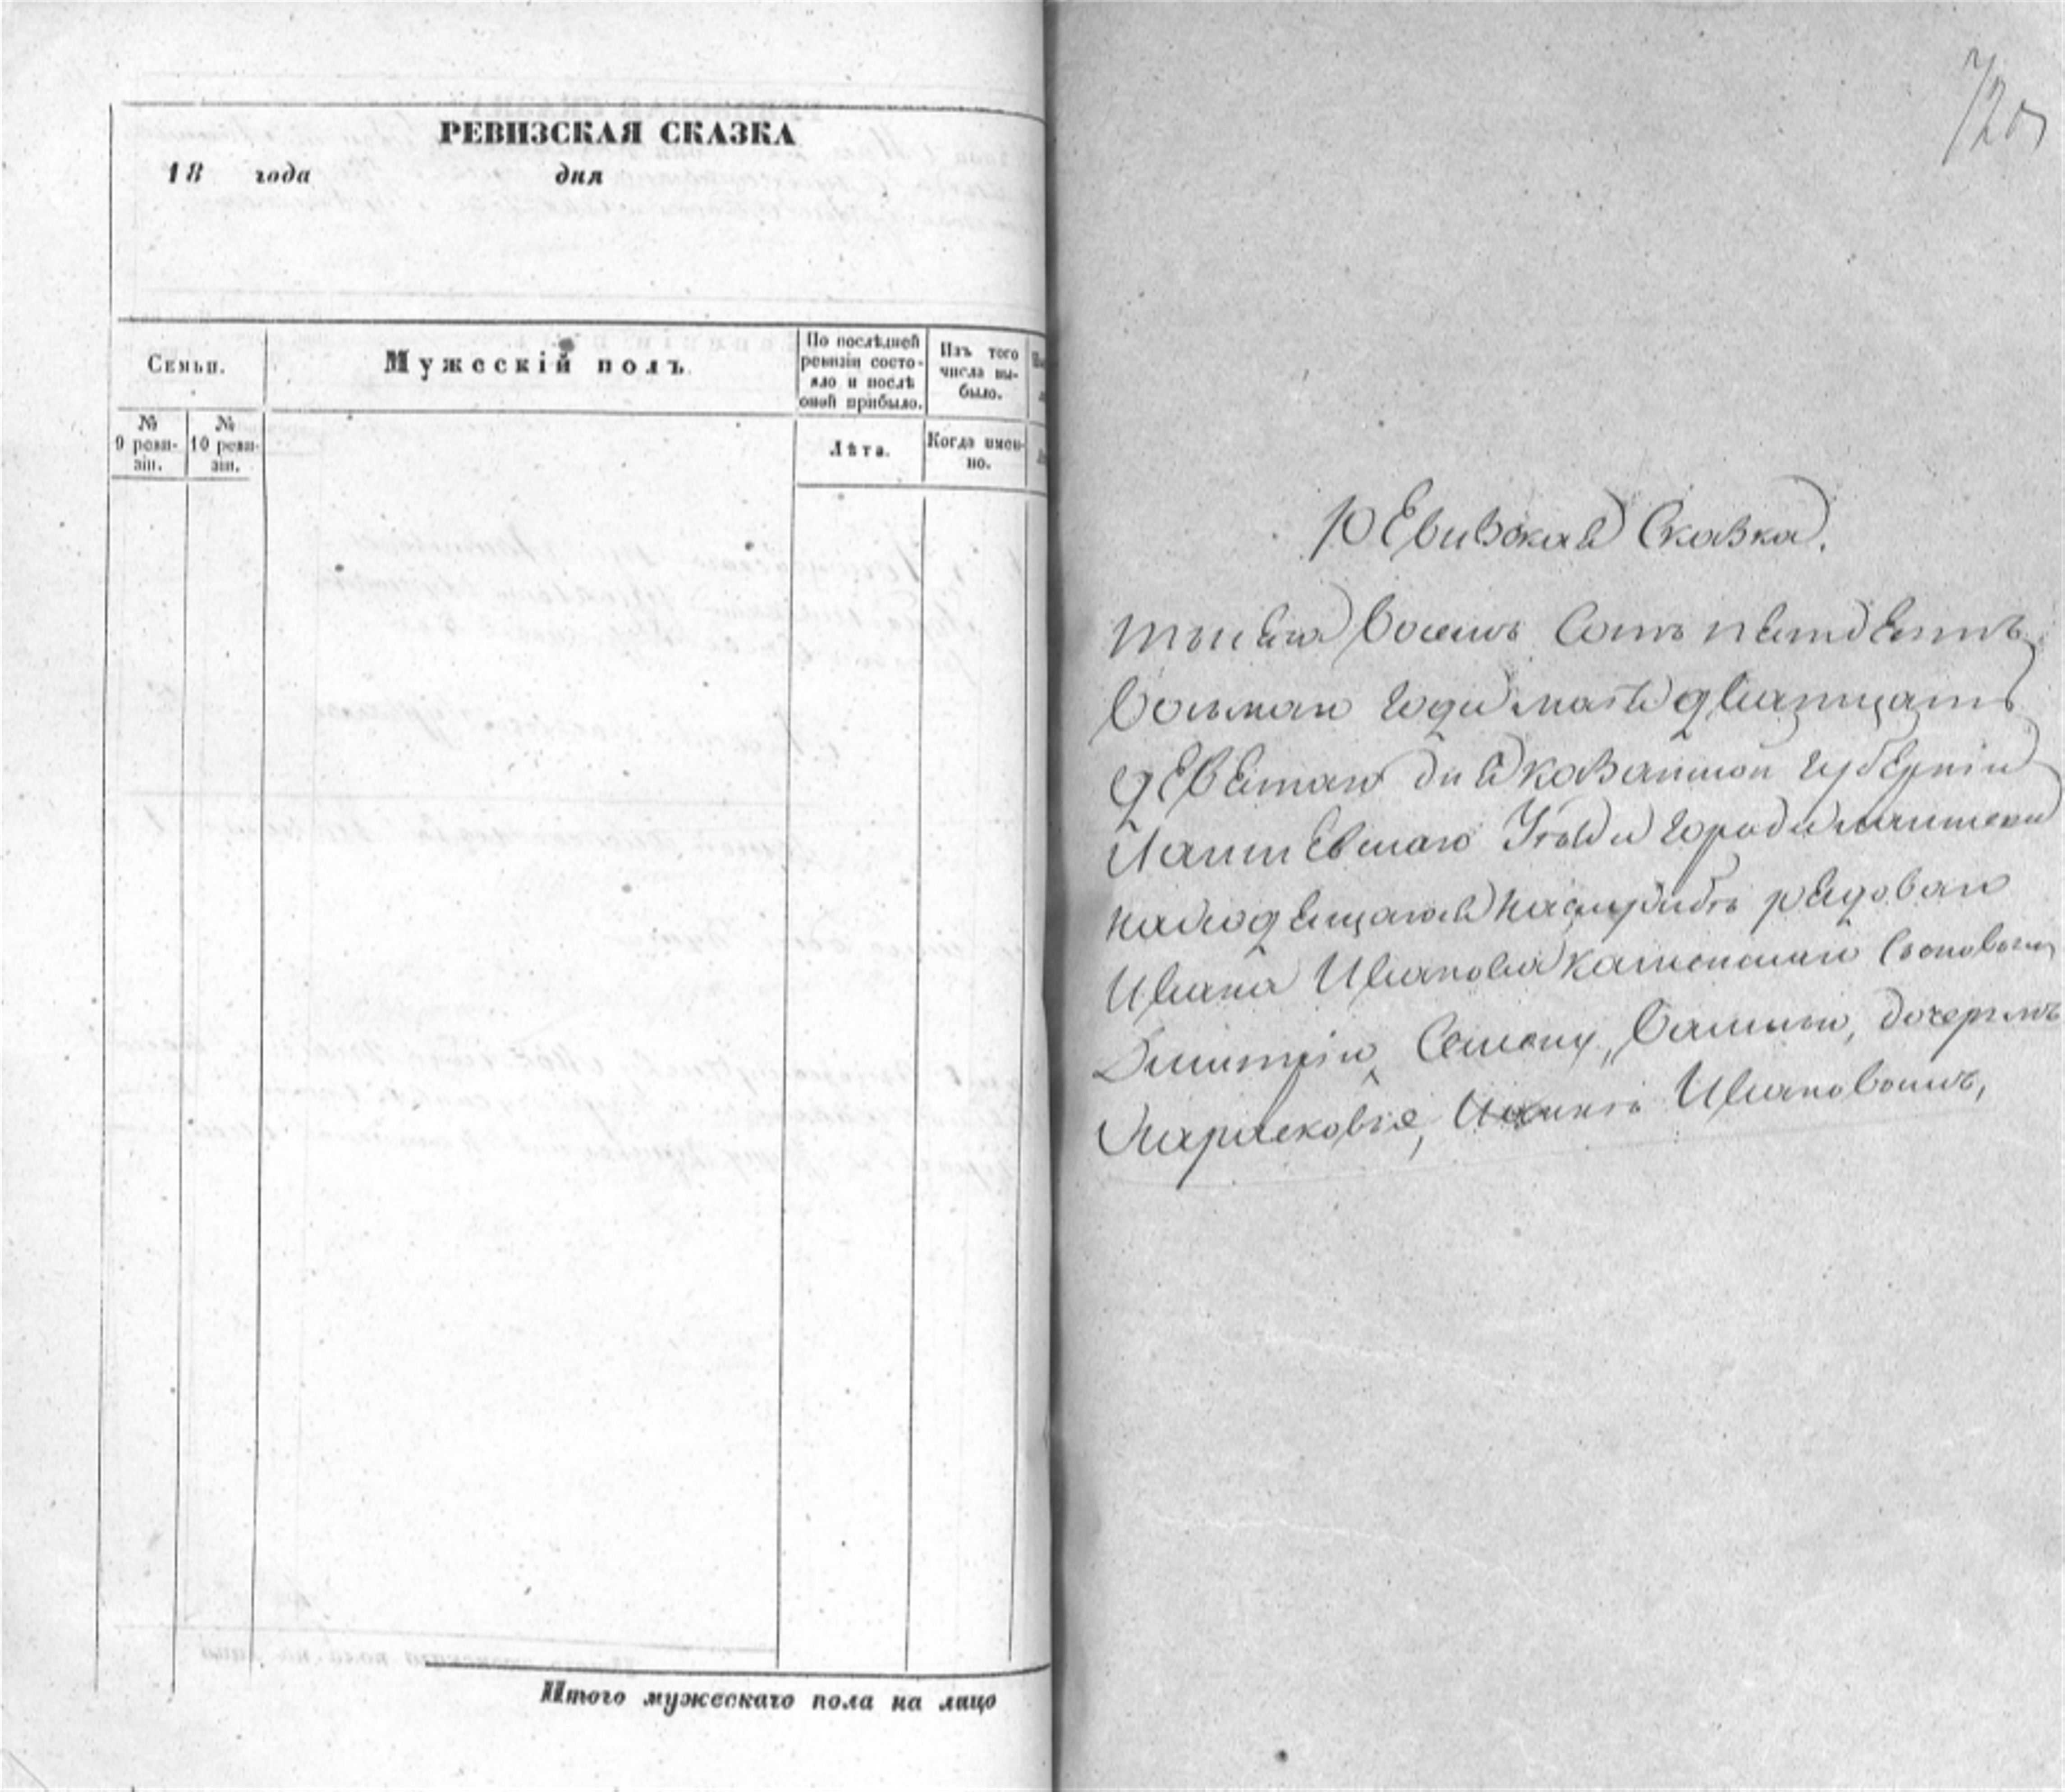 РЕВИЗСКАЯ СКАЗКА
18 года дня
Семьи.
Мужескій полъ
По послѣдней
ревизіи состо-
яло и послѣ
оной прибыло.
Изъ того
числа вы-
было.
№
9 реви-
зіи.
№
10 реви-
зіи.
Лѣта.
Когда имен-
но.
Итого мужескаго пола на лицо
720
Ревизская Сказка.
тысеча восемь сотъ петдесятъ
восьмаго года маія дватцать
деветаго дня казанской губерніи
Лаишевскаго Уѣзда города
находещагося рядоваго
Ивана Иванова сыновьямъ
Дмитрію, Семену, Василью, дочерямъ
Парасковіе, Ивановымъ,